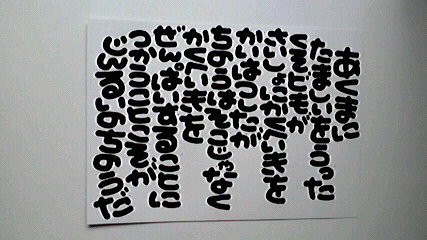 あくまに
たましいをうった
くそどもが
さいしょにかくへいきを
かいはつしたが
ちのうはそこじゃなく
かくへいきを
ぜんぱいすることに
つかうことこそが
じんるいのちのうだ